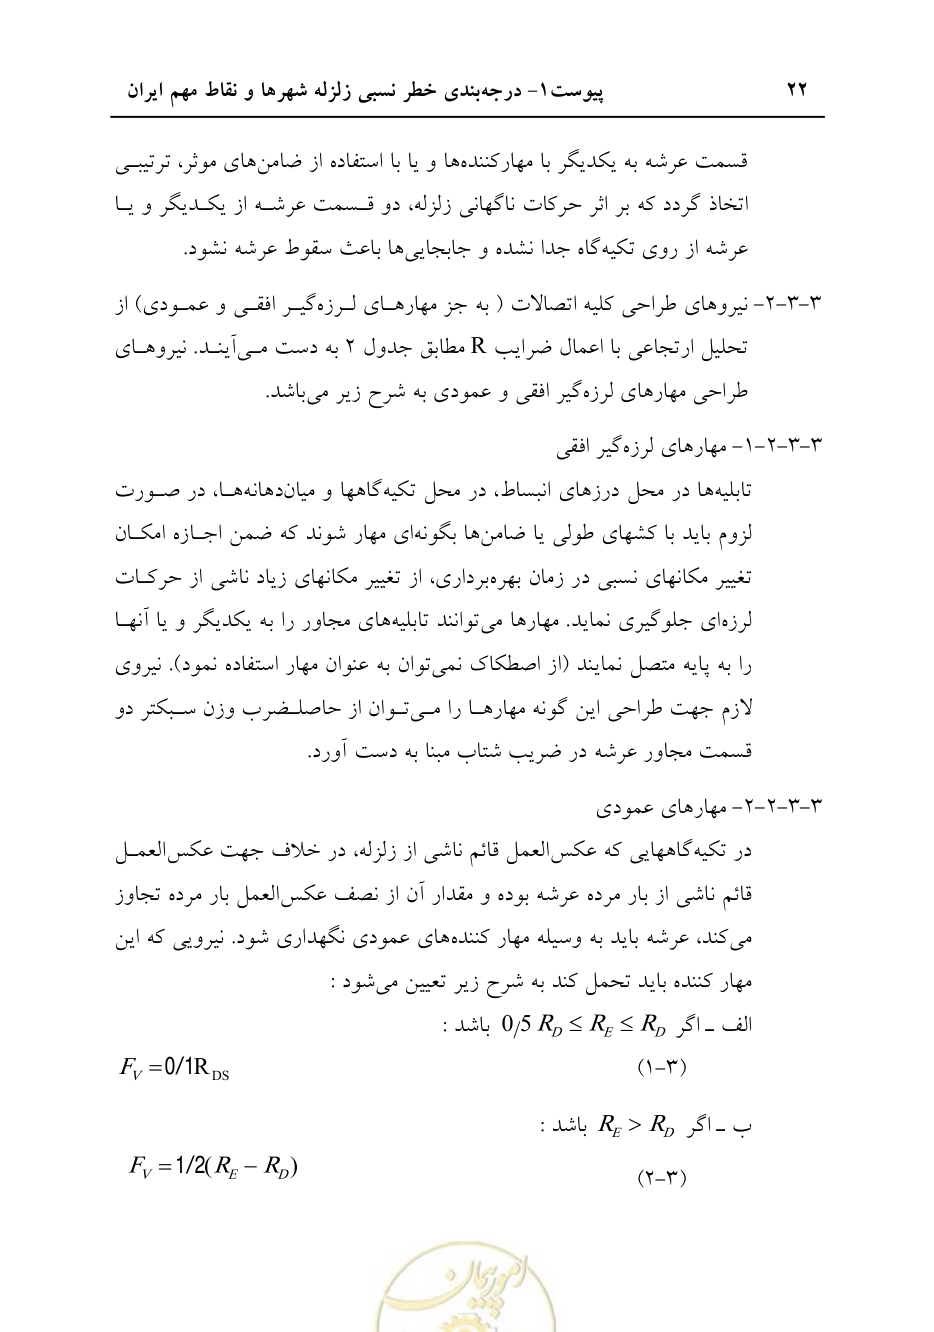 ۲۲ پیوست۱- درجه‌بندی خطر نسبی زلزله شهرها و نقاط مهم ایران
قسمت عرشه به یکدیگر با مهارکننده‌ها و یا با استفاده از ضامن‌های موثر، ترتیبی
اتخاذ گردد که بر اثر حرکات ناگهانی زلزله، دو قسمت عرشه از یکدیگر و یا
عرشه از روی تکیه‌گاه جدا نشده و جابجایی‌ها باعث سقوط عرشه نشود.
۳-۳-۲- نیروهای طراحی کلیه اتصالات ( به جز مهارهای لرزه‌گیر افقی و عمودی) از
تحلیل ارتجاعی با اعمال ضرایب R مطابق جدول ۲ به دست می‌آیند. نیروهای
طراحی مهارهای لرزه‌گیر افقی و عمودی به شرح زیر می‌باشد.
۳-۳-۲-۱- مهارهای لرزه‌گیر افقی
تابلیه‌ها در محل درزهای انبساط، در محل تکیه‌گاهها و میان‌دهانه‌ها، در صورت
لزوم باید با کشهای طولی یا ضامن‌ها بگونه‌ای مهار شوند که ضمن اجازه امکان
تغییر مکانهای نسبی در زمان بهره‌برداری، از تغییر مکانهای زیاد ناشی از حرکات
لرزه‌ای جلوگیری نماید. مهارها می‌توانند تابلیه‌های مجاور را به یکدیگر و یا آنها
را به پایه متصل نمایند (از اصطکاک نمی‌توان به عنوان مهار استفاده نمود). نیروی
لازم جهت طراحی این گونه مهارها را می‌توان از حاصلضرب وزن سبکتر دو
قسمت مجاور عرشه در ضریب شتاب مبنا به دست آورد.
۳-۳-۲-۲- مهارهای عمودی
در تکیه‌گاههایی که عکس‌العمل قائم ناشی از زلزله، در خلاف جهت عکس‌العمل
قائم ناشی از بار مرده عرشه بوده و مقدار آن از نصف عکس‌العمل بار مرده تجاوز
می‌کند، عرشه باید به وسیله مهار کننده‌های عمودی نگهداری شود. نیرویی که این
مهار کننده باید تحمل کند به شرح زیر تعیین می‌شود :
الف ـ اگر 0/5 R_D ≤ R_E ≤ R_D باشد :
(۳-۱) F_V = 0/1R_DS
ب ـ اگر R_E > R_D باشد :
(۳-۲) F_V = 1/2( R_E − R_D)
امور پیمان